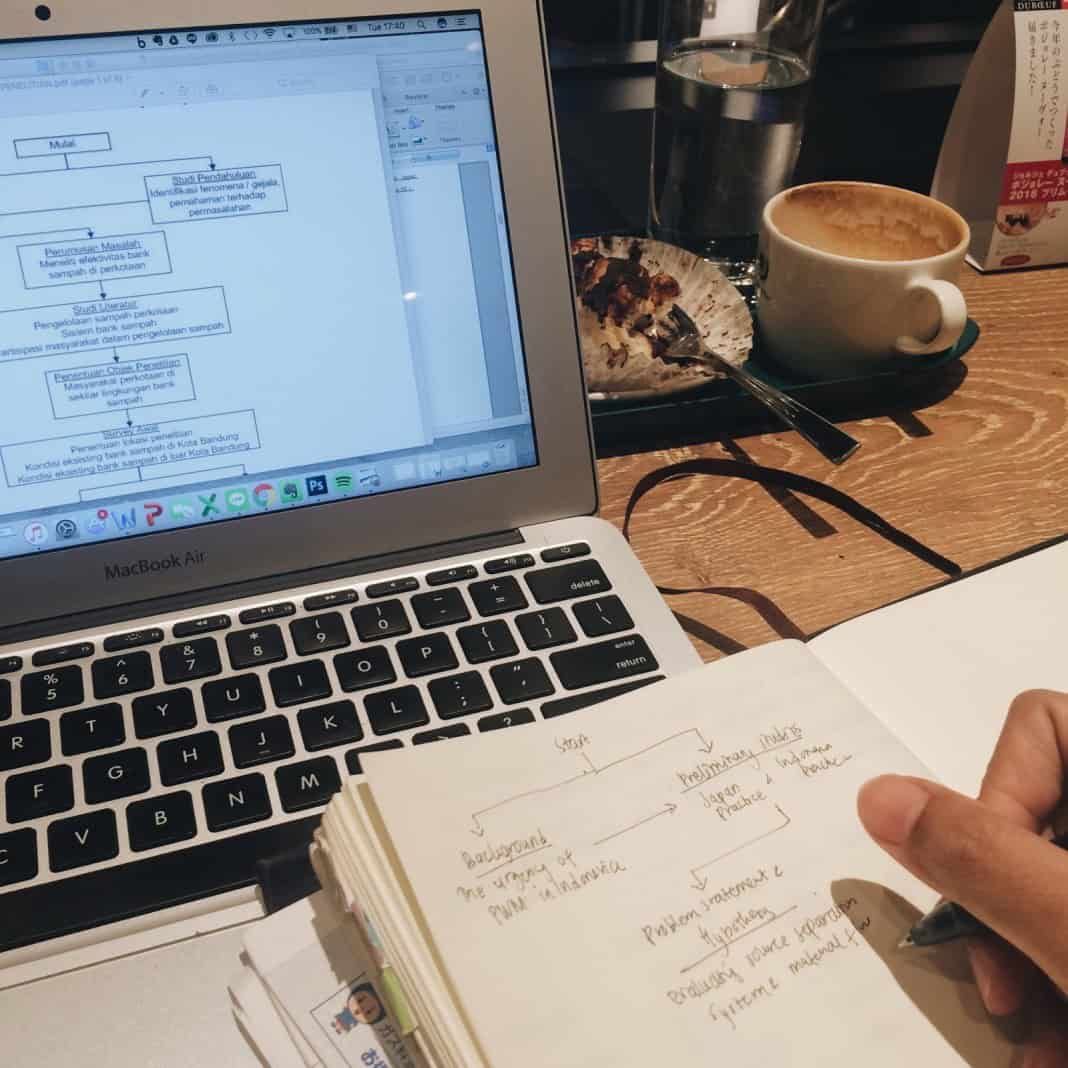 Tue 17:40
100%
PENELITIAN.pdf (page 1 of 6)
Review
Themes
Mulai
Studi Pendahuluan
Identifikasi fenomena / gejala,
pemahaman terhadap
permasalahan
Perumusan Masalah
Meneliti efektivitas bank
sampah di perkotaan
Studi Literatur
Pengelolaan sampah perkotaan
Sistem bank sampah
masyarakat dalam pengelolaan sampah
Penentuan Objek Penelitian
Masyarakat perkotaan di
sekitar lingkungan bank
sampah
Survey Awal
Penentuan lokasi penelitian
Kondisi eksisting bank sampah di Kota Bandung
Kondisi eksisting bank sampah di luar Kota Bandung
Ps
MacBook Air
delete
% 5
^ 6
& 7
* 8
( 9
) 0
_ -
+ =
R T Y U I O P { [ } ] | \
enter
return
F G H J K L : ; " '
C V B N M ?
DUBŒUF
今年のぶどうでつくった
ボジョレー ヌーヴォー
届きました！
ジョルジュ デュブ
ボジョレー ヌ
2016 プリム
Start
Background
The urgency of
PWM in Indonesia
Preliminary studies
Japan
Practice
& Indonesia
Problem statement &
Hypothesis
evaluating source separation
system & material
ガス
お